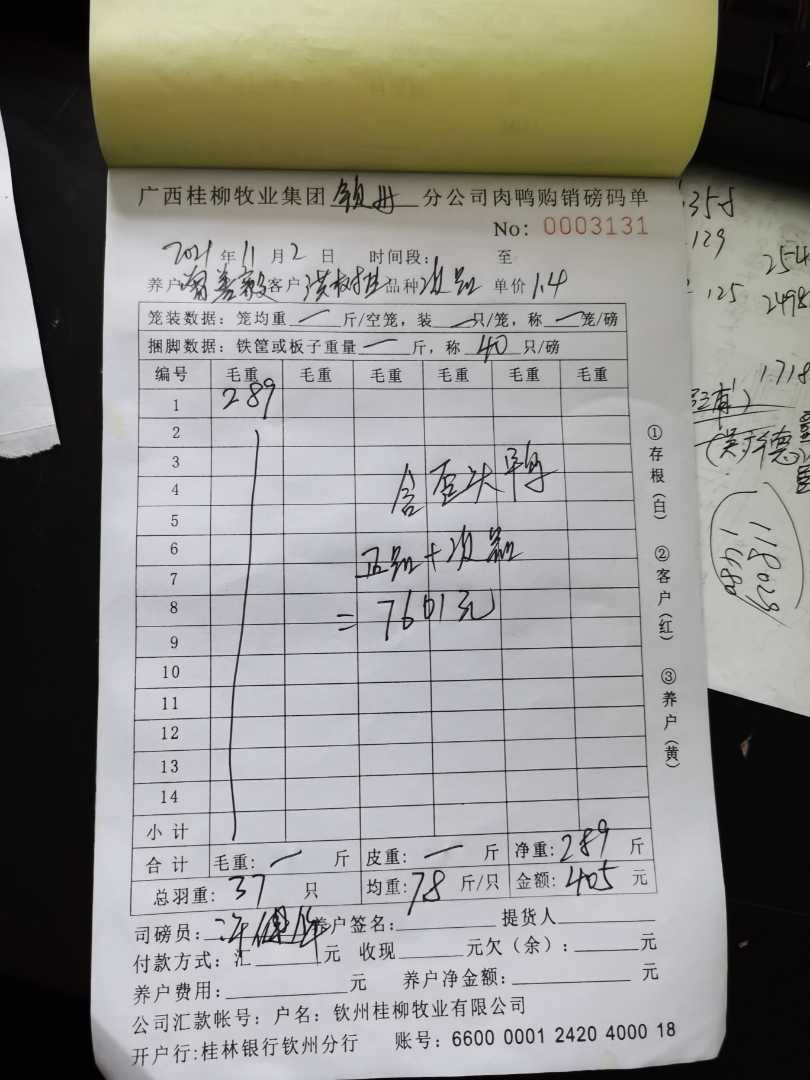 广西桂柳牧业集团 钦州 分公司肉鸭购销磅码单
No: 0003131
2021 年 11 月 2 日 时间段: 至
养户 客户 品种 次品 单价 1.4
笼装数据: 笼均重 一 斤/空笼, 装 一 只/笼, 称 一 笼/磅
捆脚数据: 铁筐或板子重量 一 斤, 称 40 只/磅
编号 毛重 毛重 毛重 毛重 毛重 毛重
1 289
2
3
4
5
6
7
8
9
10
11
12
13
14
含歪头鸭
正品+次品
=7661元
小计
合计 毛重: 一 斤 皮重: 一 斤 净重: 289 斤
总羽重: 37 只 均重: 78 斤/只 金额: 405 元
司磅员: 养户签名: 提货人
付款方式: 汇 元 收现 元欠(余): 元
养户费用: 元 养户净金额: 元
公司汇款帐号: 户名: 钦州桂柳牧业有限公司
开户行:桂林银行钦州分行 账号: 6600 0001 2420 4000 18
①存根(白) ②客户(红) ③养户(黄)
358
129
254
125
2498
1718
118029
1480